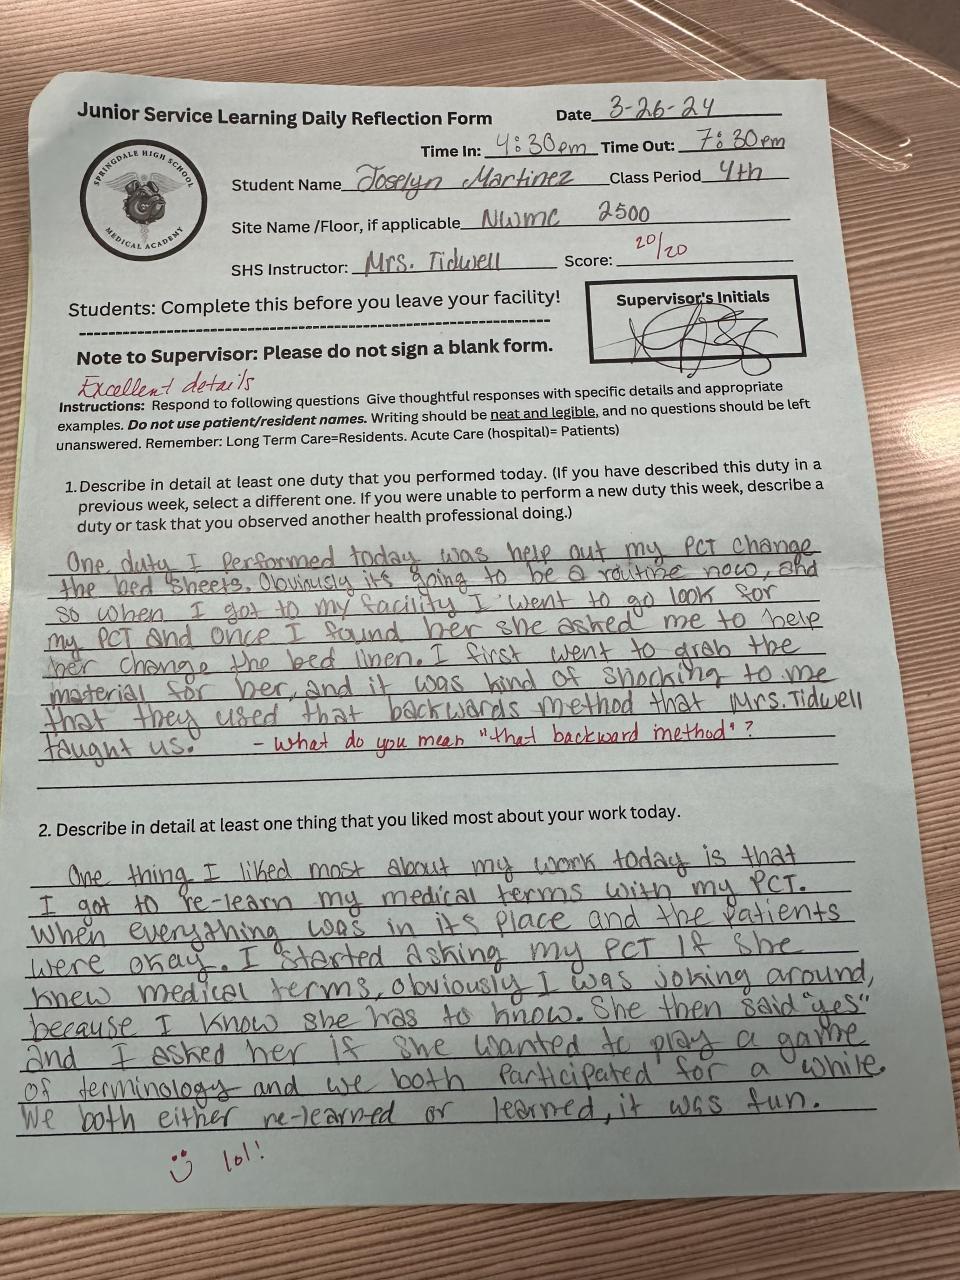 Junior Service Learning Daily Reflection Form
Date 3-26-24
Time In: 4:30pm Time Out: 7:30pm
SPRINGDALE HIGH SCHOOL
MEDICAL ACADEMY
Student Name Joselyn Martinez Class Period 4th
Site Name /Floor, if applicable NWMC 2500
SHS Instructor: Mrs. Tidwell Score: 20/20
Students: Complete this before you leave your facility!
Supervisor's Initials
Note to Supervisor: Please do not sign a blank form.
Excellent details
Instructions: Respond to following questions Give thoughtful responses with specific details and appropriate
examples. Do not use patient/resident names. Writing should be neat and legible, and no questions should be left
unanswered. Remember: Long Term Care=Residents. Acute Care (hospital)= Patients)
1. Describe in detail at least one duty that you performed today. (If you have described this duty in a
previous week, select a different one. If you were unable to perform a new duty this week, describe a
duty or task that you observed another health professional doing.)
One duty I performed today was help out my PCT change
the bed sheets. Obviously it's going to be a routine now, and
so when I got to my facility I went to go look for
my PCT and once I found her she asked me to help
her change the bed linen. I first went to grab the
material for her, and it was kind of shocking to me
that they used that backwards method that Mrs. Tidwell
taught us. - What do you mean "that backward method"?
2. Describe in detail at least one thing that you liked most about your work today.
One thing I liked most about my work today is that
I got to re-learn my medical terms with my PCT.
When everything was in its place and the patients
were okay. I started asking my PCT if she
knew medical terms, obviously I was joking around,
because I know she has to know. She then said "yes"
and I asked her if she wanted to play a game
of terminology and we both participated for a while.
We both either re-learned or learned, it was fun.
lol!